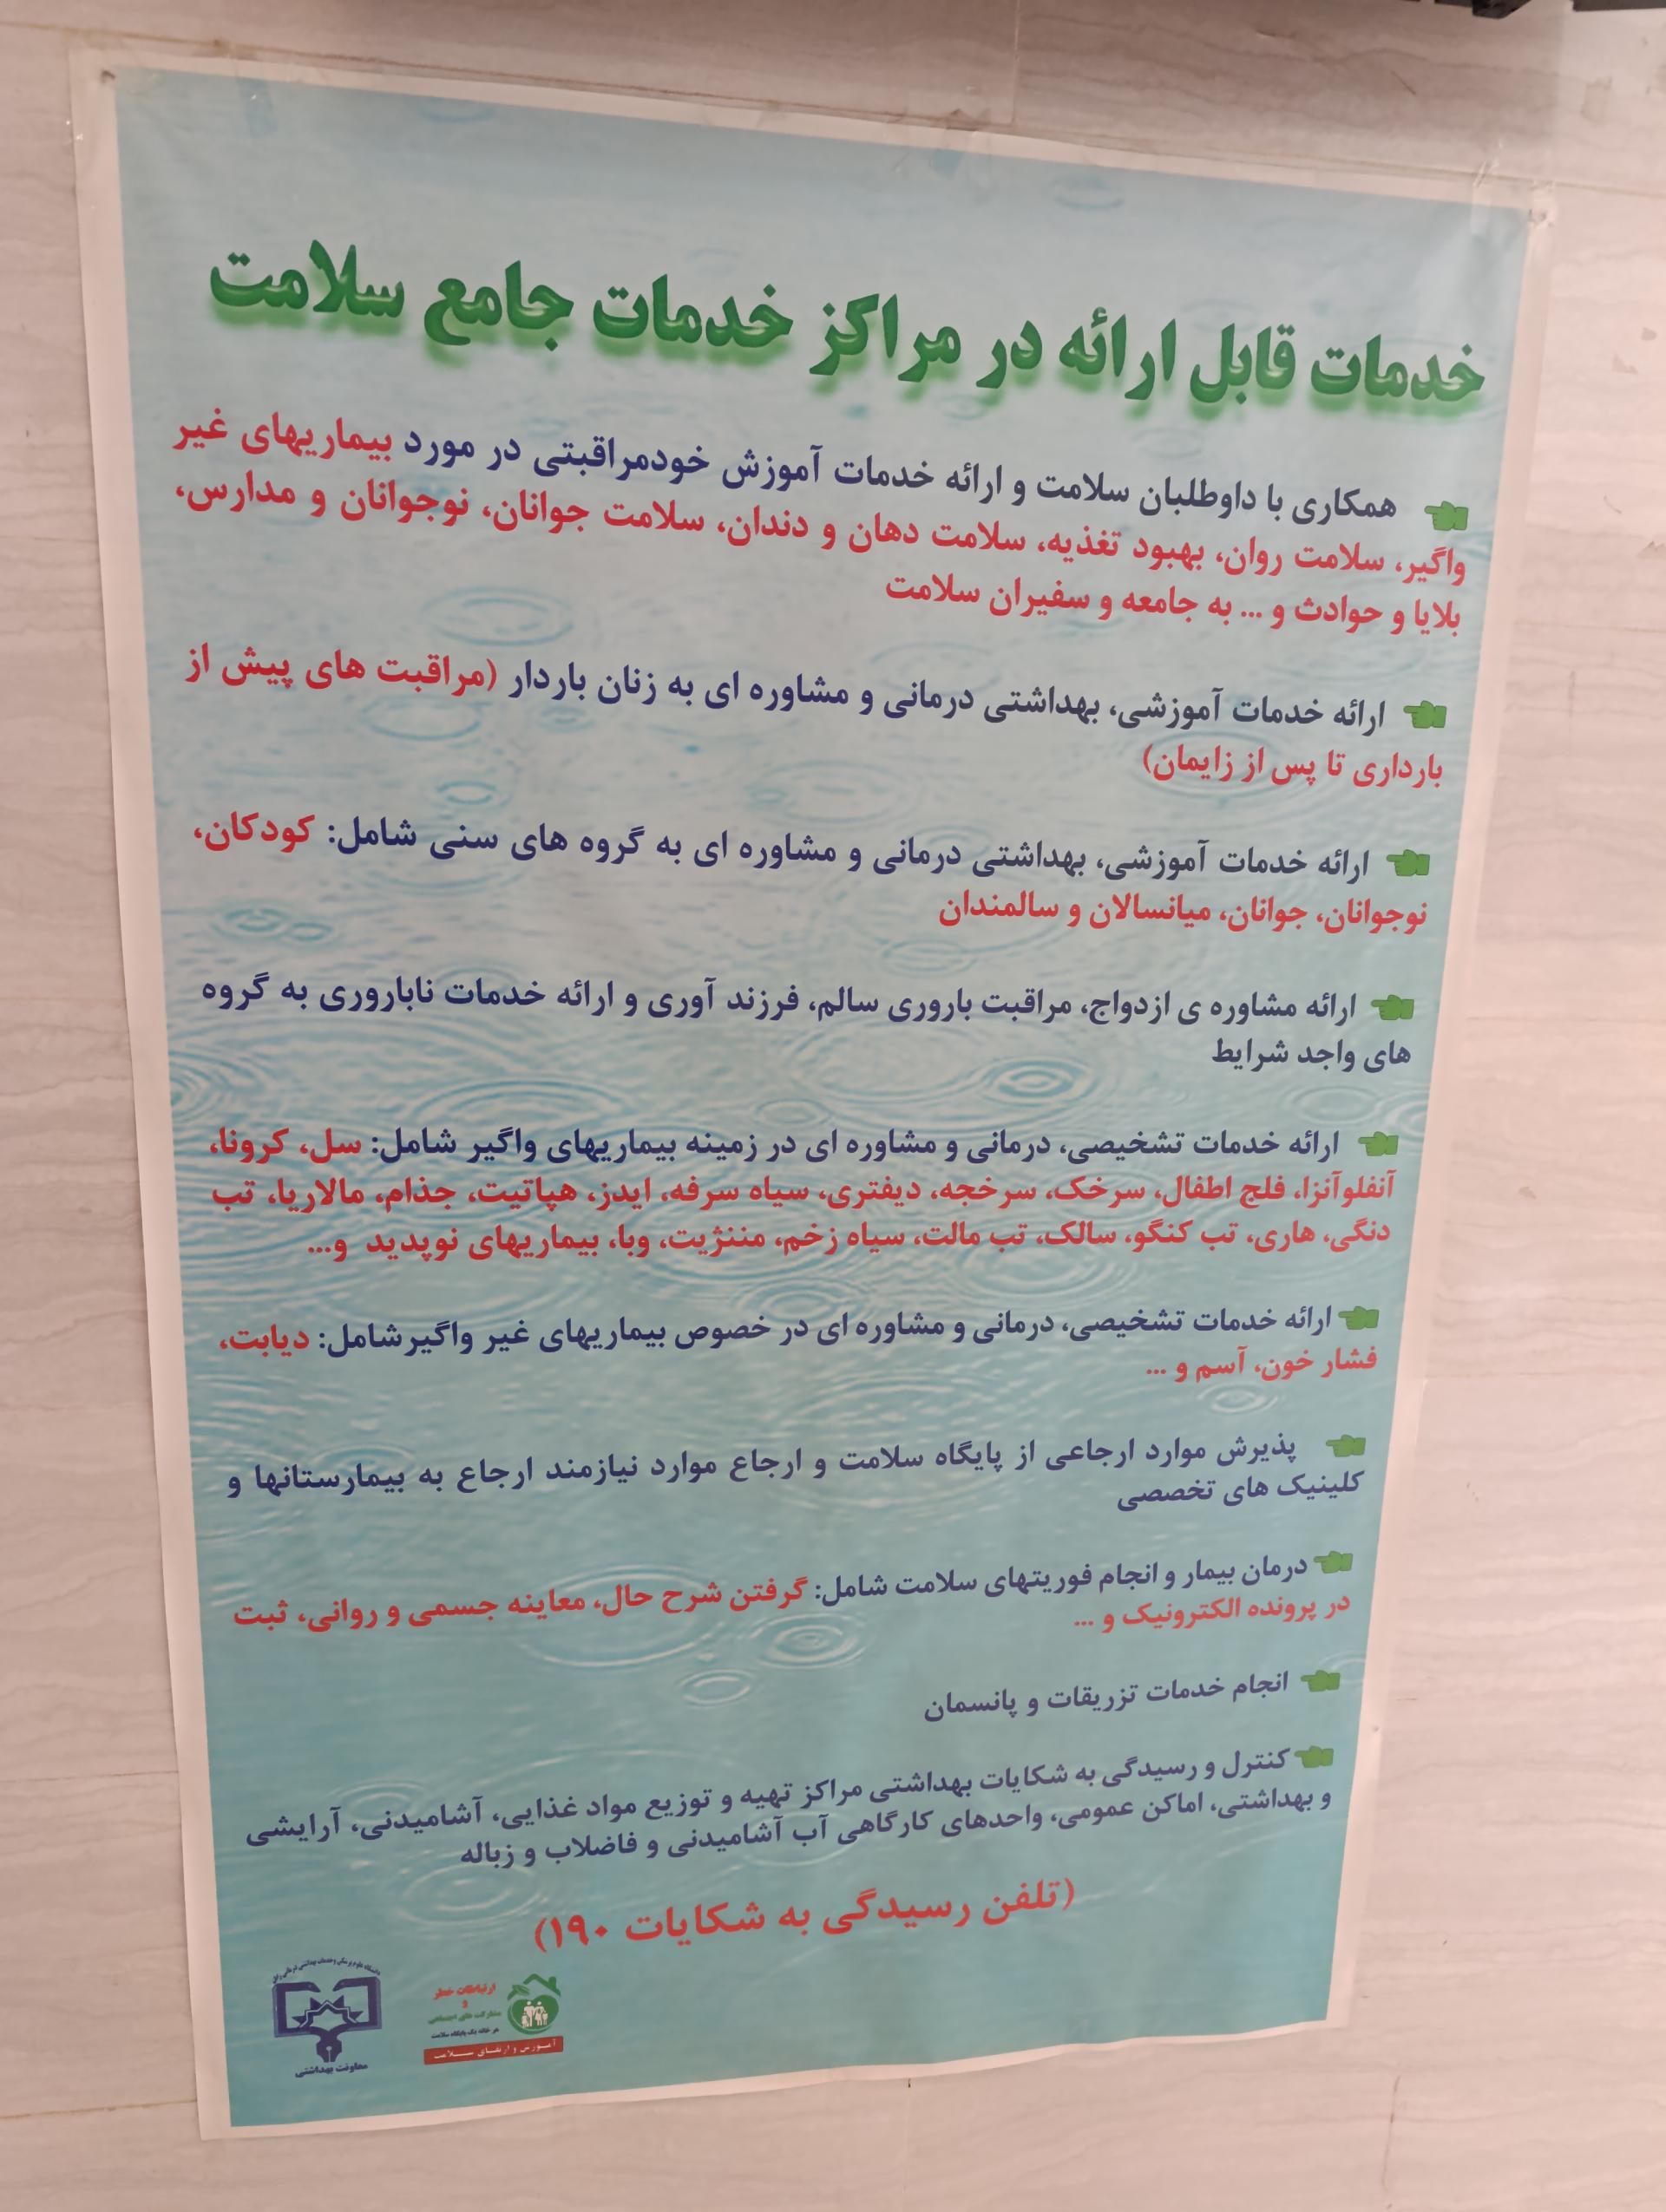 خدمات قابل ارائه در مراکز خدمات جامع سلامت
همکاری با داوطلبان سلامت و ارائه خدمات آموزش خودمراقبتی در مورد بیماریهای غیر
واگیر، سلامت روان، بهبود تغذیه، سلامت دهان و دندان، سلامت جوانان، نوجوانان و مدارس،
بلایا و حوادث و ... به جامعه و سفیران سلامت
ارائه خدمات آموزشی، بهداشتی درمانی و مشاوره ای به زنان باردار (مراقبت های پیش از
بارداری تا پس از زایمان)
ارائه خدمات آموزشی، بهداشتی درمانی و مشاوره ای به گروه های سنی شامل: کودکان،
نوجوانان، جوانان، میانسالان و سالمندان
ارائه مشاوره ی ازدواج، مراقبت باروری سالم، فرزند آوری و ارائه خدمات ناباروری به گروه
های واجد شرایط
ارائه خدمات تشخیصی، درمانی و مشاوره ای در زمینه بیماریهای واگیر شامل: سل، کرونا،
آنفلوآنزا، فلج اطفال، سرخک، سرخجه، دیفتری، سیاه سرفه، ایدز، هپاتیت، جذام، مالاریا، تب
دنگی، هاری، تب کنگو، سالک، تب مالت، سیاه زخم، مننژیت، وبا، بیماریهای نوپدید و...
ارائه خدمات تشخیصی، درمانی و مشاوره ای در خصوص بیماریهای غیر واگیرشامل: دیابت،
فشار خون، آسم و ...
پذیرش موارد ارجاعی از پایگاه سلامت و ارجاع موارد نیازمند ارجاع به بیمارستانها و
کلینیک های تخصصی
درمان بیمار و انجام فوریتهای سلامت شامل: گرفتن شرح حال، معاینه جسمی و روانی، ثبت
در پرونده الکترونیک و ...
انجام خدمات تزریقات و پانسمان
کنترل و رسیدگی به شکایات بهداشتی مراکز تهیه و توزیع مواد غذایی، آشامیدنی، آرایشی
و بهداشتی، اماکن عمومی، واحدهای کارگاهی آب آشامیدنی و فاضلاب و زباله
(تلفن رسیدگی به شکایات ۱۹۰)
ارتباطات خطر
و
مشارکت های اجتماعی
هر خانه یک پایگاه سلامت
آموزش و ارتقای سلامت
دانشگاه علوم پزشکی و خدمات بهداشتی درمانی
معاونت بهداشتی